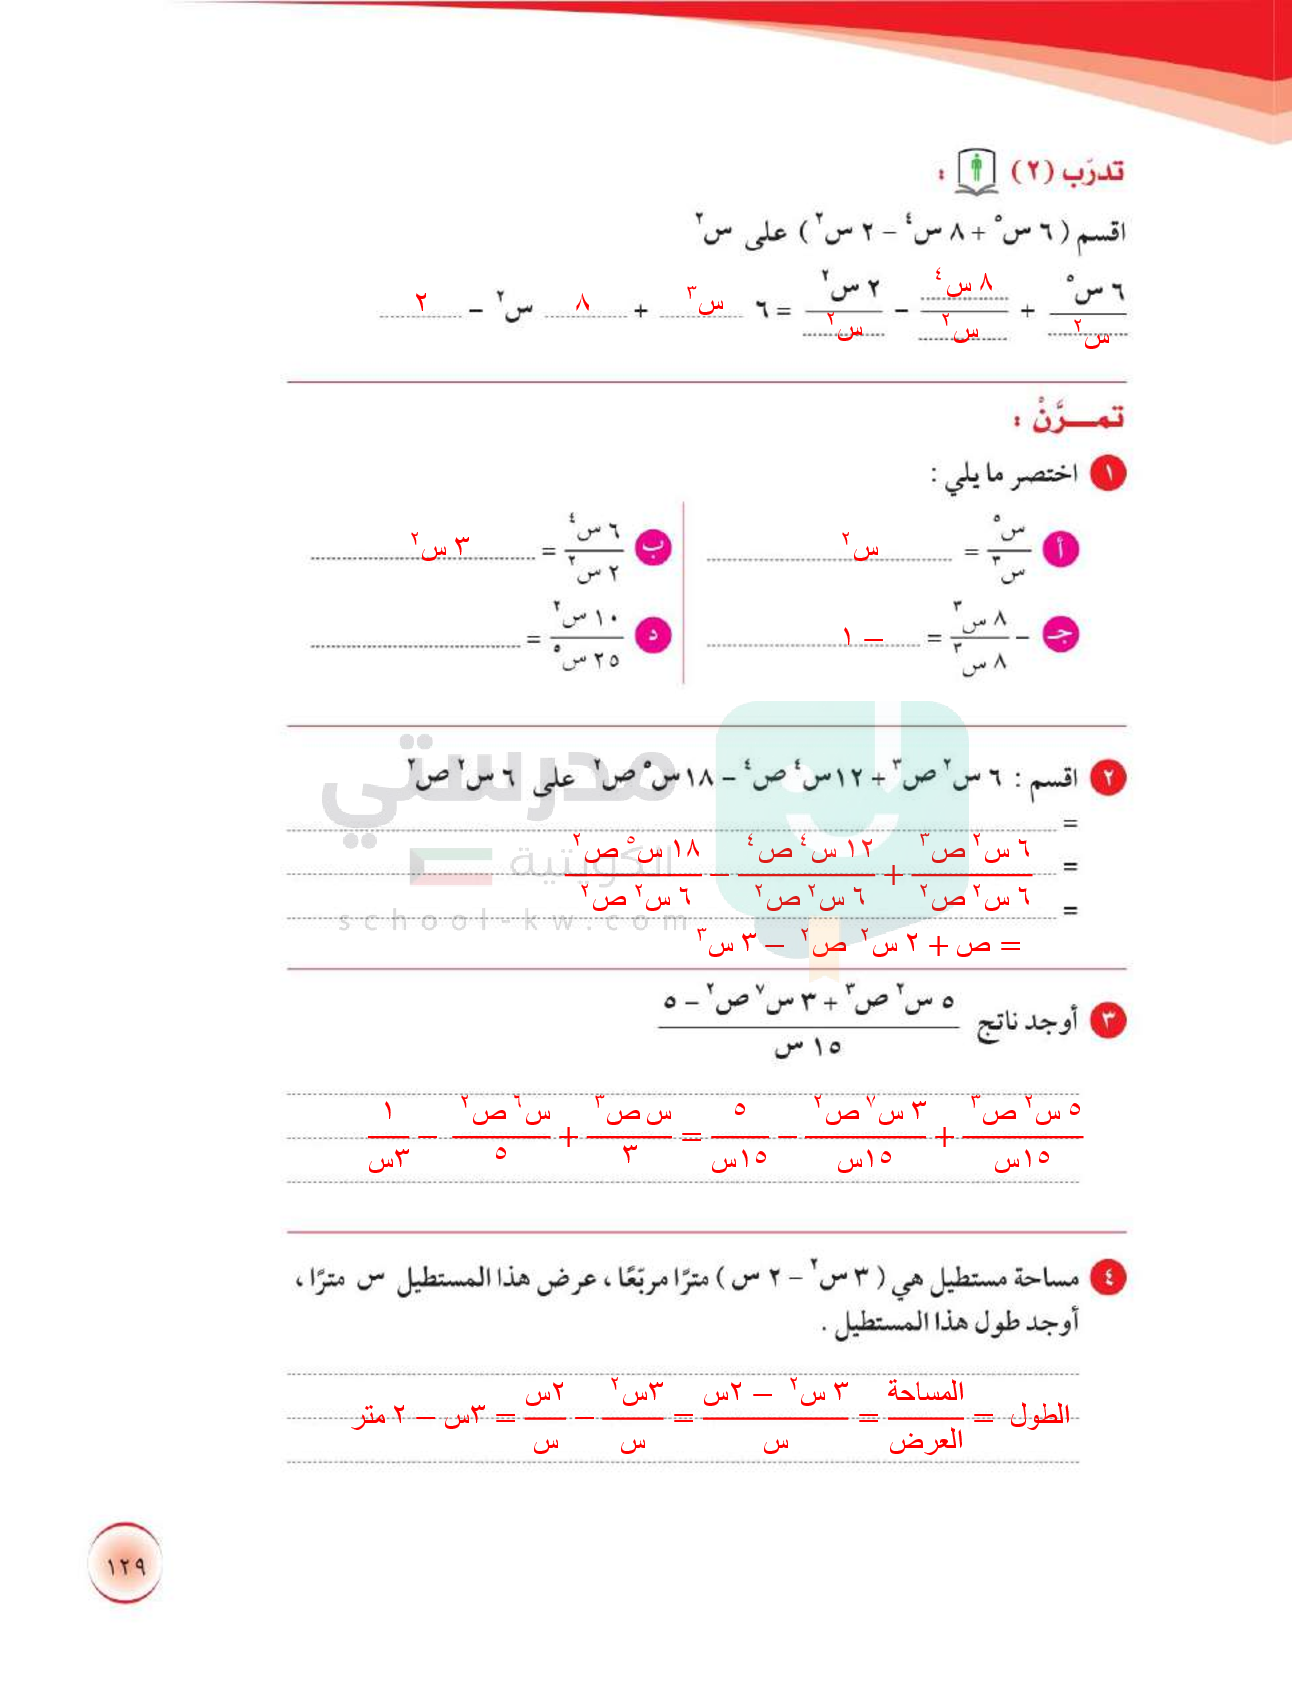 تدرّب (٢) :
اقسم ( ٦ س⁵ + ٨ س⁴ – ٢ س² ) على س²
٦ س⁵ / س² + ٨ س⁴ / س² – ٢ س² / س² = ٦ س³ + ٨ س² – ٢
تمــرَّنْ :
١ اختصر ما يلي :
أ س⁵ / س³ = س²
ب ٦ س⁴ / ٢ س² = ٣ س²
جـ – ٨ س³ / ٨ س³ = – ١
د ١٠ س² / ٢٥ س⁵ =
٢ اقسم : ٦ س² ص³ + ١٢ س⁴ ص⁴ – ١٨ س⁵ ص² على ٦ س² ص²
=
= ٦ س² ص³ / ٦ س² ص² + ١٢ س⁴ ص⁴ / ٦ س² ص² – ١٨ س⁵ ص² / ٦ س² ص²
=
= ص + ٢ س² ص² – ٣ س³
مدرستي
الكويتية
school-kw.com
٣ أوجد ناتج ٥ س² ص³ + ٣ س⁷ ص² – ٥ / ١٥ س
٥ س² ص³ / ١٥س + ٣ س⁷ ص² / ١٥س – ٥ / ١٥س = س ص³ / ٣ + س⁶ ص² / ٥ – ١ / ٣س
٤ مساحة مستطيل هي ( ٣ س² – ٢ س ) مترًا مربّعًا ، عرض هذا المستطيل س مترًا ،
أوجد طول هذا المستطيل .
الطول = المساحة / العرض = ٣ س² – ٢س / س = ٣س² / س – ٢س / س = ٣س – ٢ متر
١٢٩